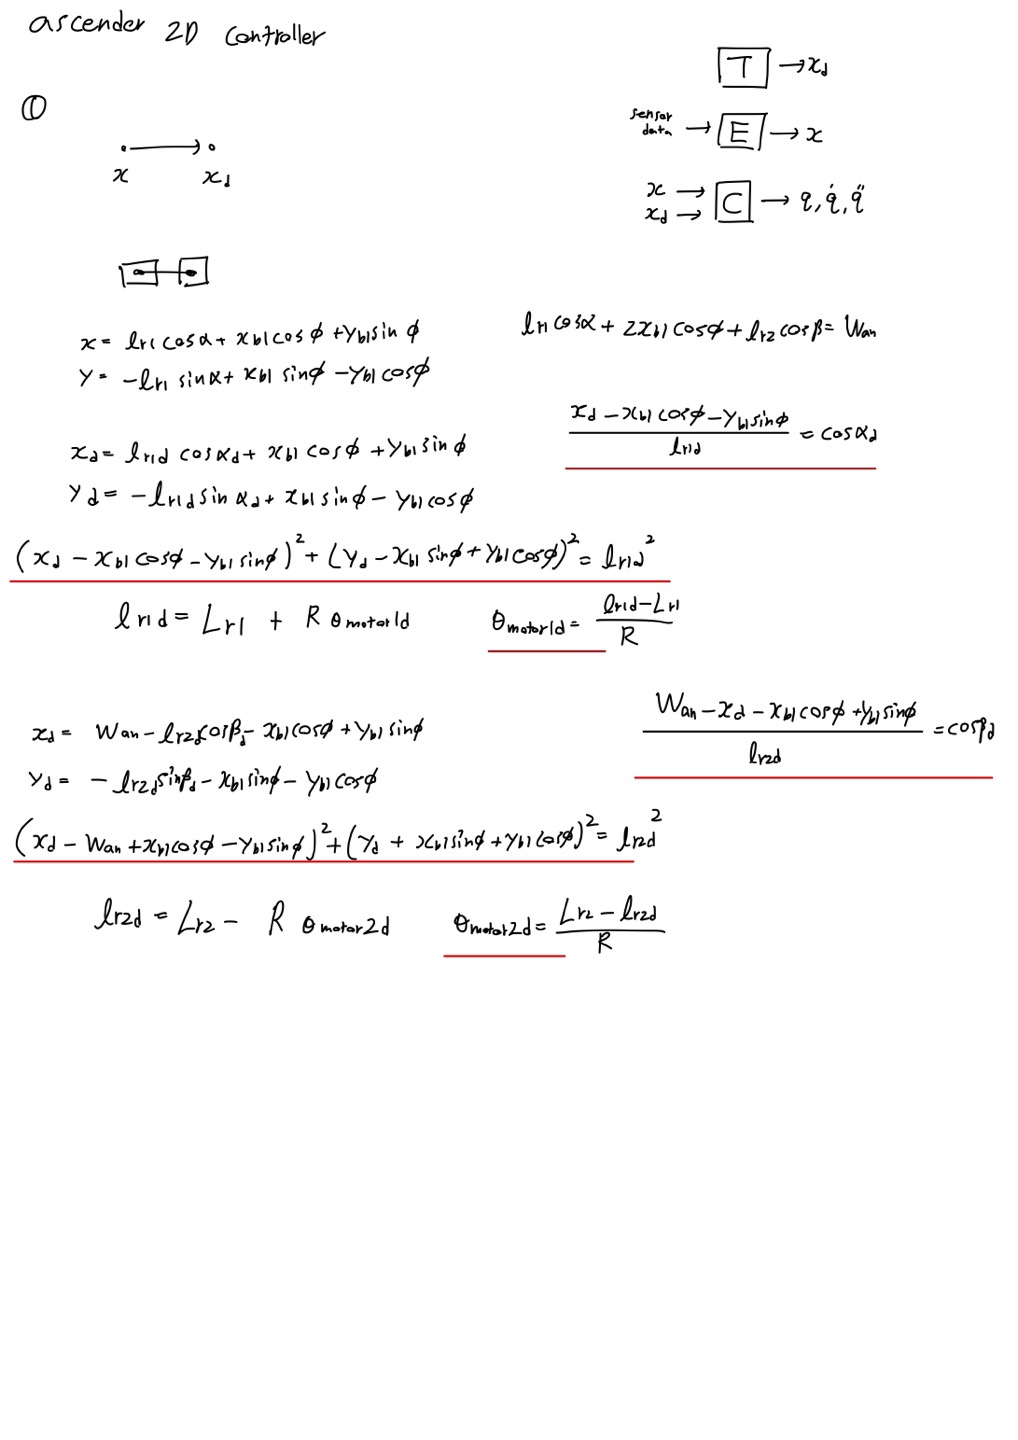 ascender 2D Controller
T → x_d
①
sensor data → E → x
x → x_d
x
x_d → C → q, q̇, q̈
x = l_r1 cosα + x_b1 cosϕ + y_b1 sinϕ
l_r1 cosα + 2x_b1 cosϕ + l_r2 cosβ = W_an
y = -l_r1 sinα + x_b1 sinϕ - y_b1 cosϕ
(x_d - x_b1 cosϕ - y_b1 sinϕ) / l_r1d = cosα_d
x_d = l_r1d cosα_d + x_b1 cosϕ + y_b1 sinϕ
y_d = -l_r1d sinα_d + x_b1 sinϕ - y_b1 cosϕ
(x_d - x_b1 cosϕ - y_b1 sinϕ)² + (y_d - x_b1 sinϕ + y_b1 cosϕ)² = l_r1d²
l_r1d = L_r1 + R θ_motor1d
θ_motor1d = (l_r1d - L_r1) / R
(W_an - x_d - x_b1 cosϕ + y_b1 sinϕ) / l_r2d = cosβ_d
x_d = W_an - l_r2d cosβ_d - x_b1 cosϕ + y_b1 sinϕ
y_d = - l_r2d sinβ_d - x_b1 sinϕ - y_b1 cosϕ
(x_d - W_an + x_b1 cosϕ - y_b1 sinϕ)² + (y_d + x_b1 sinϕ + y_b1 cosϕ)² = l_r2d²
l_r2d = L_r2 - R θ_motor2d
θ_motor2d = (L_r2 - l_r2d) / R